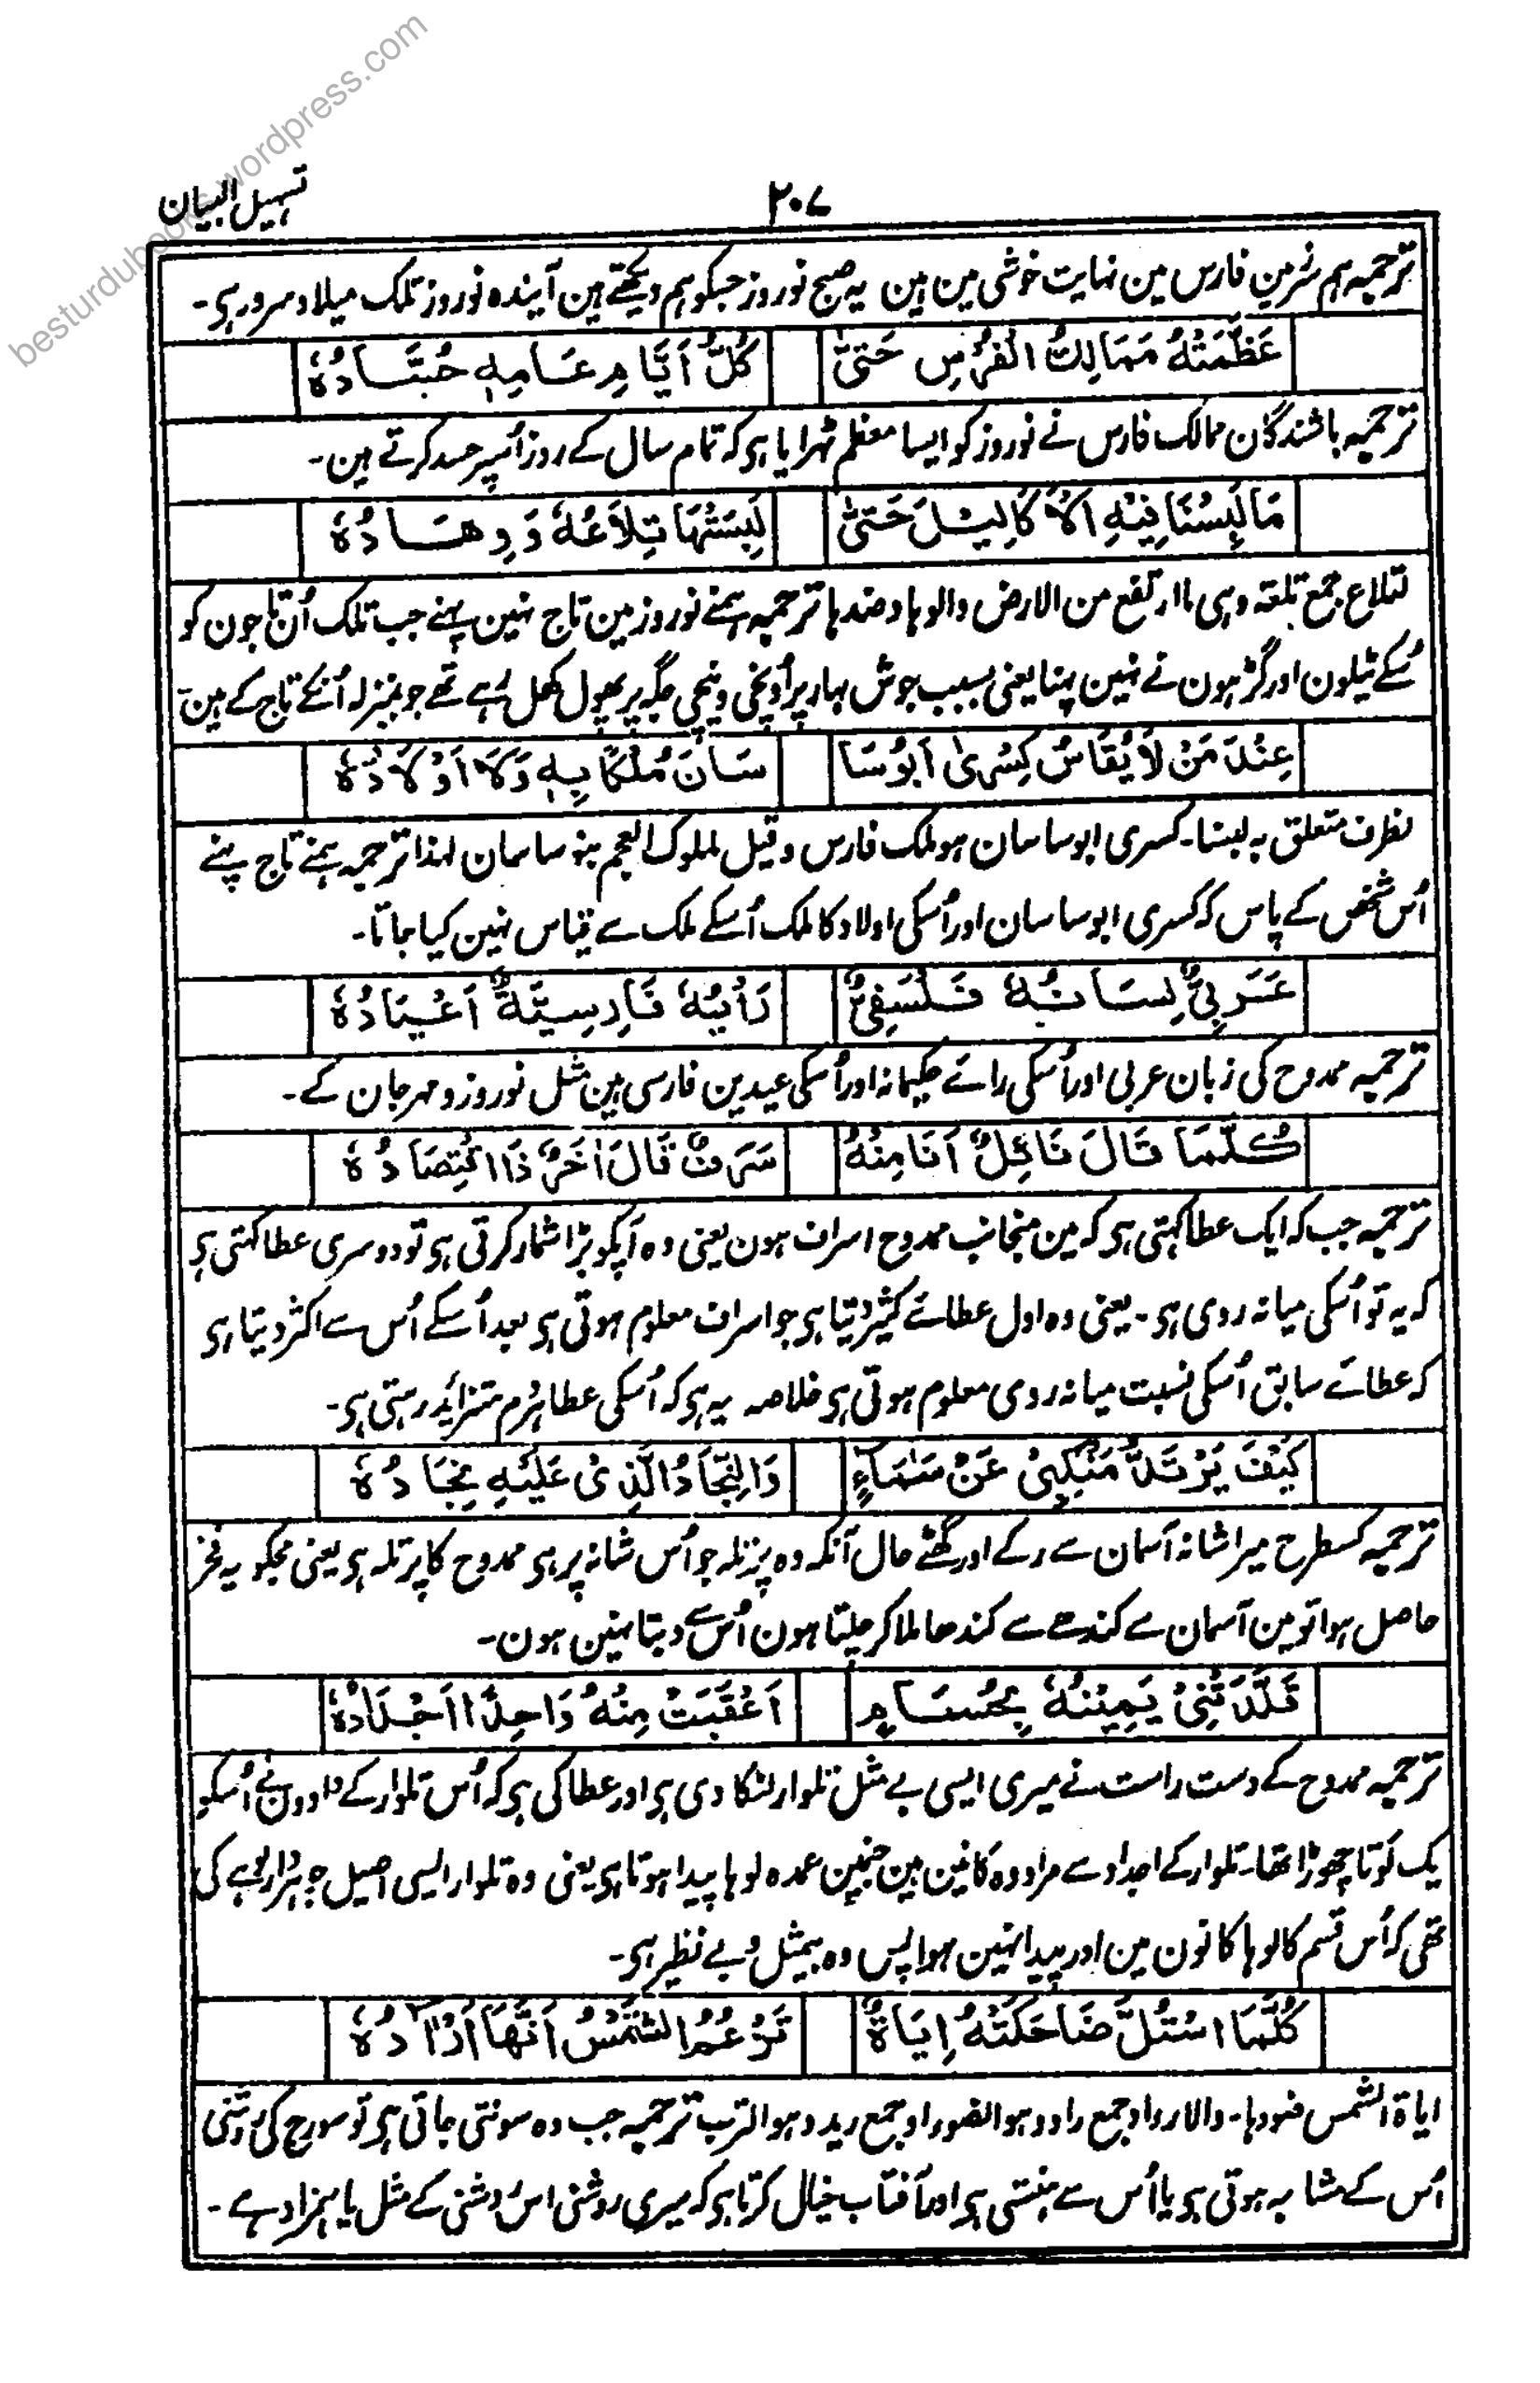 besturdubooks.wordpress.com
۲۰۷
تسہیل البیان
ترجمہ ہم سرزمین فارس مین نہایت خوشی مین ہین یہ صبح نوروز جسکو ہم دیکھتے ہین آیندہ نوروز تلک میلاد سرور ہی۔
عَظَّمَتْهُ مَمَالِكُ الْفُرْسِ حَتّیٰ كُلُّ اَيَّامِ عَامِهٖ حُسَّادُهٗ
ترجمہ باشندگان ممالک فارس نے نوروز کو ایسا معظم ٹھرایا ہی کہ تمام سال کے روز اُسپر حسد کرتے ہین۔
مَا لَبِسْنَا فِيْهِ الْاَكَالِيْلَ حَتّیٰ لَبِسَتْهَا تِلَاعُهٗ وَ وِهَادُهٗ
لتلاع جمع تلعۃ وہی ما ارتفع من الارض والوہاد ضدہا ترجمہ ہمنے نوروز مین تاج نہین پہنے جب تلک اُن تاجون کو
اُسکے ٹیلون اور گڑہون نے نہین پہنا یعنی بسبب جوش بہار پر اُونچی و نیچی جگہ پر پھول کھل رہے تھے جو بمنزلہ اُنکے تاج کے ہین
عِنْدَ مَنْ لَا يُقَاسُ كِسْرٰی اَبُوْ سَا سَانَ مُلْكًا بِهٖ وَلَا اَوْلَادُهٗ
لظرف متعلق بہ لبسنا۔ کسری ابو ساسان ہو ملک فارس وقیل لملوک العجم بنو ساسان لہذا ترجمہ ہمنے تاج پہنے
اُس شخص کے پاس کہ کسری ابو ساسان اور اُسکی اولاد کا ملک اُسکے ملک سے قیاس نہین کیا جاتا۔
عَرَبِيٌّ لِسَانُهٗ فَلْسَفِيٌّ رَأْيُهٗ فَارِسِيَّةٌ اَعْيَادُهٗ
ترجمہ ممدوح کی زبان عربی اور اُسکی رائے حکیمانہ اور اُسکی عیدین فارسی ہین مثل نوروز و مہرجان کے۔
كُلَّمَا قَالَ نَائِلٌ اَنَا مِنْهُ سَرَفٌ قَالَ اٰخَرُ ذَا اقْتِصَادُهٗ
ترجمہ جب کہ ایک عطا کہتی ہی کہ مین منجانب ممدوح اسراف ہون یعنی وہ آپکو بڑا شمار کرتی ہی تو دوسری عطا کہتی ہی
کہ یہ تو اُسکی میانہ روی ہی۔ یعنی وہ اول عطائے کثیر دیتا ہی جو اسراف معلوم ہوتی ہی بعد اُسکے اُس سے اکثر دیتا ہی
کہ عطائے سابق اُسکی نسبت میانہ روی معلوم ہوتی ہی خلاصہ یہ ہی کہ اُسکی عطا ہر دم متزاید رہتی ہی۔
كَيْفَ يَرْتَدُّ مَنْكِبِيْ عَنْ سَمَاءٍ وَالنِّجَادُ الَّذِيْ عَلَيْهِ نِجَادُهٗ
ترجمہ کسطرح میرا شانہ آسمان سے رکے اور گھٹے حال آنکہ وہ پرتلہ جو اُس شانہ پر ہی ممدوح کا پرتلہ ہی یعنی مجکو یہ فخر
حاصل ہوا تو مین آسمان سے کندھے سے کندھا ملا کر چلتا ہون اُس سے دبتا نہین ہون۔
قَلَّدَتْنِيْ يَمِيْنُهٗ بِحُسَامٍ اَعْقَبَتْ مِنْهُ وَاحِدًا اَجْدَادُهٗ
ترجمہ ممدوح کے دست راست نے میری ایسی بے مثل تلوار لٹکا دی ہی اور عطا کی ہی کہ اُس تلوار کے دادون نے اُسکو
یک کوتا چھوڑا تھا۔ تلوار کے اجداد سے مراد وہ کانین ہین جنمین عمدہ لوہا پیدا ہوتا ہی یعنی وہ تلوار ایسی اصیل جوہردار لوہے کی
تھی کہ اُس قسم کا لوہا کانون مین اور پیدا نہین ہوا پس وہ بیمثل و بے نظیر ہی۔
كُلَّمَا اسْتُلَّ ضَاحَكَتْهُ اِيَاةٌ تَزْعُمُ الشَّمْسُ اَنَّهَا اَرْآدُهٗ
ایاۃ الشمس ضوءہا۔ والارواد جمع راد وہو الضوء او جمع رید وہو الترب ترجمہ جب وہ سونتی جاتی ہی تو سورج کی روشنی
اُس کے مشابہ ہوتی ہی یا اُس سے ہنستی ہی اور آفتاب خیال کرتا ہی کہ میری روشنی اس روشنی کے مثل یا ہمزاد ہے۔